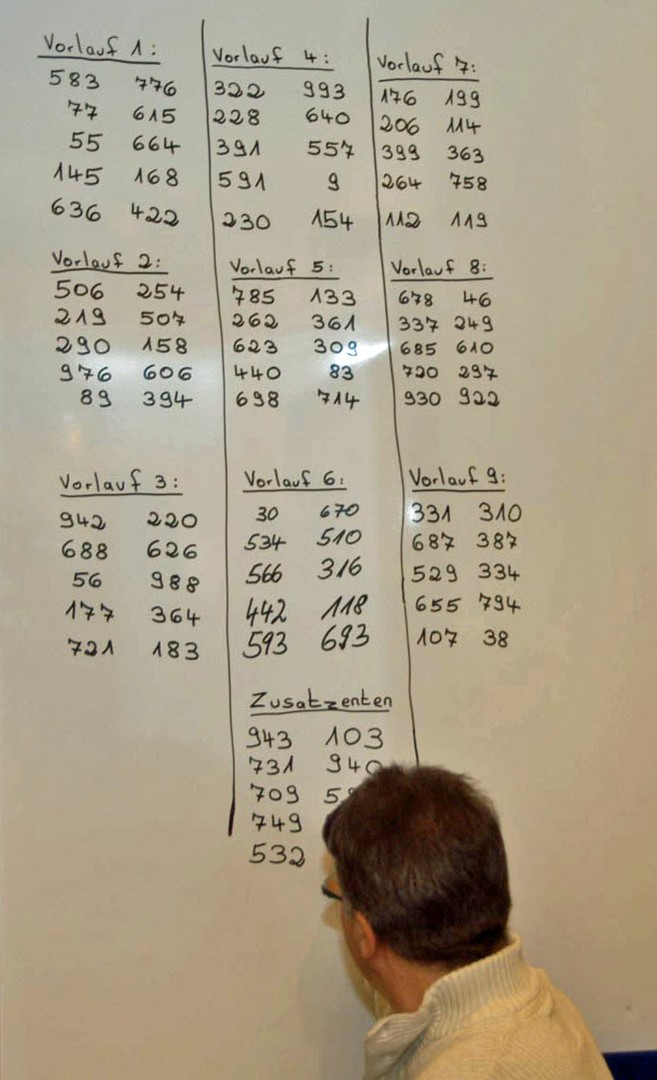 Vorlauf 1:
583 776
77 615
55 664
145 168
636 422
Vorlauf 2:
506 254
219 507
290 158
976 606
89 394
Vorlauf 3:
942 220
688 626
56 988
177 364
721 183
Vorlauf 4:
322 993
228 640
391 557
591 9
230 154
Vorlauf 5:
785 133
262 361
623 309
440 83
698 714
Vorlauf 6:
30 670
534 510
566 316
442 118
593 693
Zusatzenten
943 103
731 940
709
749
532
Vorlauf 7:
176 199
206 114
399 363
264 758
112 119
Vorlauf 8:
678 46
337 249
685 610
720 297
930 922
Vorlauf 9:
331 310
687 387
529 334
655 794
107 38